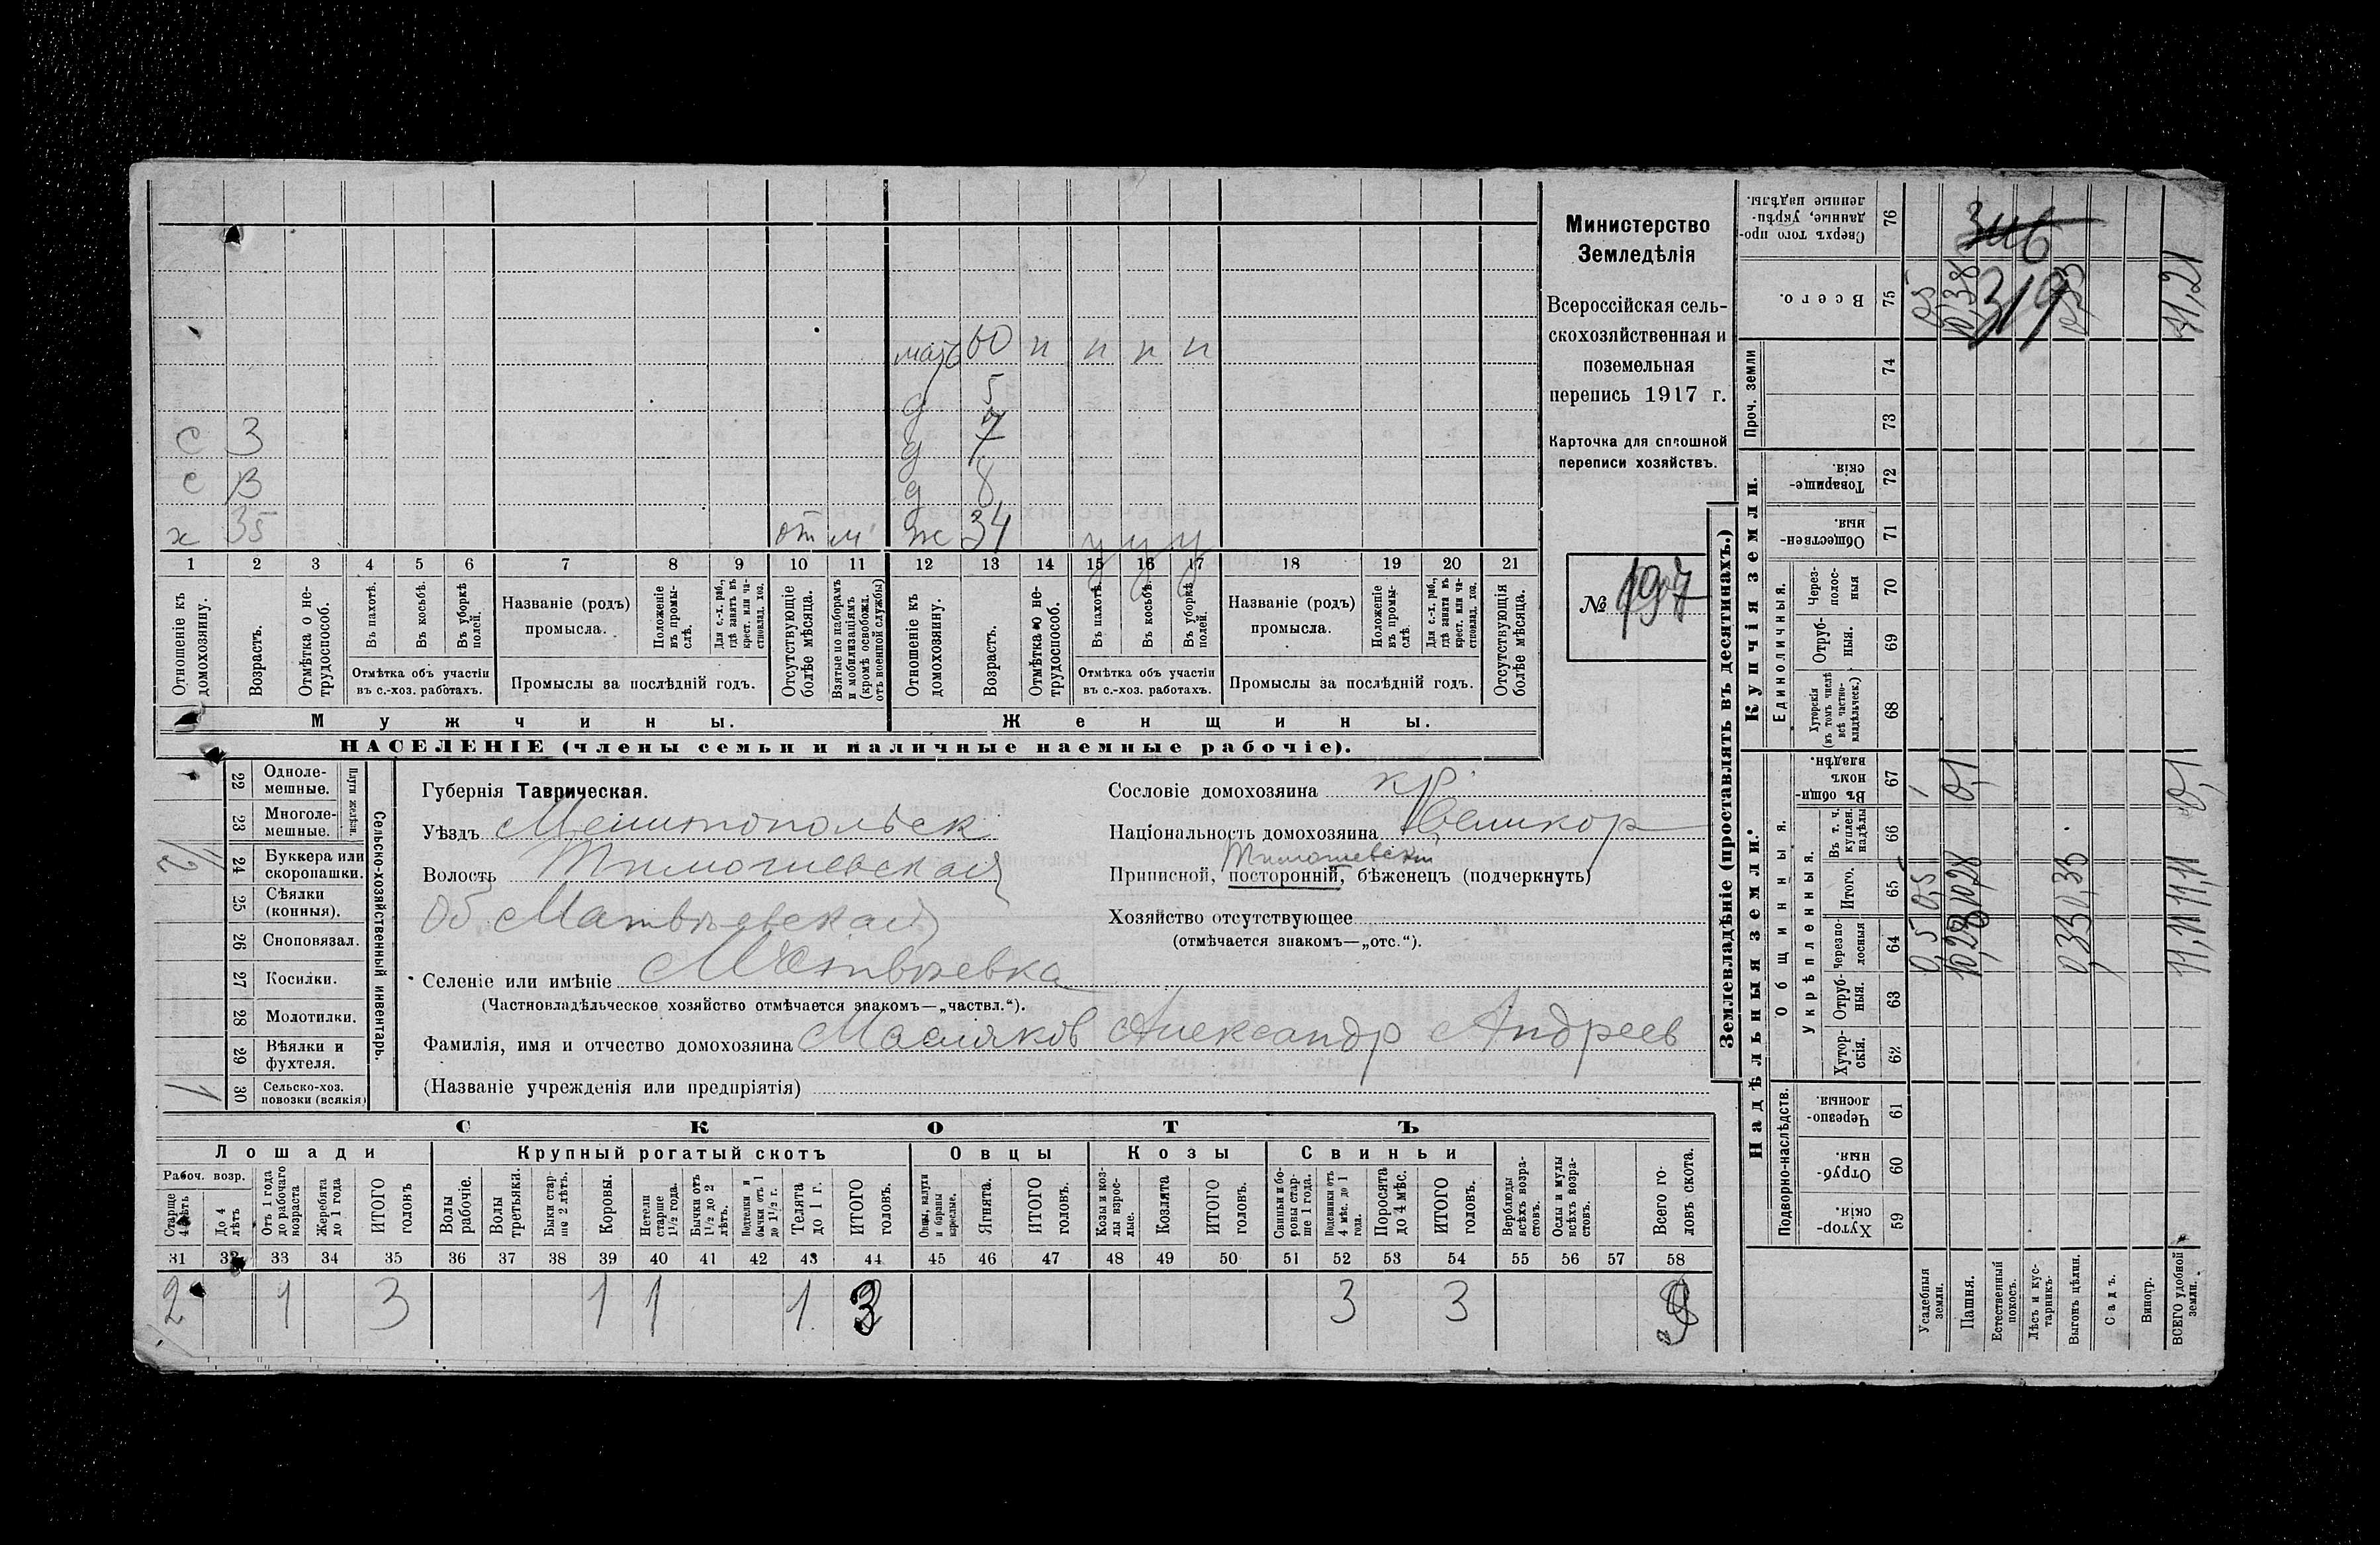 мать 60 н н н н
д 5
с 3 д 7
с 13 д 8
х 35 от м ж 34 у у у
1 2 3 4 5 6 7 8 9 10 11 12 13 14 15 16 17 18 19 20 21
Отношеніе къ домохозяину.
Возрастъ.
Отмѣтка о не-трудоспособ.
Въ пахотѣ.
Въ косьбѣ.
Въ уборкѣ полей.
Отмѣтка объ участіи въ с.-хоз. работахъ.
Названіе (родъ) промысла.
Положеніе въ промы-слѣ.
Для с.-х. раб., гдѣ занятъ въ крест. или ча-стновлад. хоз.
Промыслы за послѣдній годъ.
Отсутствующіе болѣе мѣсяца.
Взятые по наборамъ и мобилизаціямъ (кромѣ освобожд. отъ военной службы)
Отношеніе къ домохозяину.
Возрастъ.
Отмѣтка о не-трудоспособ.
Въ пахотѣ.
Въ косьбѣ.
Въ уборкѣ полей.
Отмѣтка объ участіи въ с.-хоз. работахъ.
Названіе (родъ) промысла.
Положеніе въ промы-слѣ.
Для с.-х. раб., гдѣ занята въ крест. или ча-стновлад. хоз.
Промыслы за послѣдній годъ.
Отсутствующія болѣе мѣсяца.
Мужчины.
Женщины.
НАСЕЛЕНІЕ (члены семьи и наличные наемные рабочіе).
Министерство
Земледѣлія
Всероссійская сель-
скохозяйственная и
поземельная
перепись 1917 г.
Карточка для сплошной
переписи хозяйствъ.
№ 197
22 Одноле-мешные.
23 Многоле-мешные.
Плуги желѣзн.
24 Буккера или скоропашки. 1/2
25 Сѣялки (конныя).
26 Сноповязал.
27 Косилки.
28 Молотилки.
29 Вѣялки и фухтеля.
30 Сельско-хоз. повозки (всякія) 1
Сельско-хозяйственный инвентарь.
Губернія Таврическая.
Уѣздъ Мелитопольск
Волость Тимошевская
Об Матвѣевская
Селеніе или имѣніе Матвѣевка
(Частновладѣльческое хозяйство отмѣчается знакомъ—„частвл.“).
Фамилія, имя и отчество домохозяина Масляков Александр Андреев
(Названіе учрежденія или предпріятія)
Сословіе домохозяина кр.
Національность домохозяина Великор
Тимошевскій
Приписной, посторонній, бѣженецъ (подчеркнуть)
Хозяйство отсутствующее
(отмѣчается знакомъ—„отс.“).
СКОТЪ
Лошади
Крупный рогатый скотъ
Овцы
Козы
Свиньи
Рабоч. возр.
Старше 4 лѣтъ
До 4 лѣтъ
Отъ 1 года до рабочаго возраста
Жеребята до 1 года
ИТОГО головъ
Волы рабочіе.
Волы третьяки.
Быки стар-ше 2 лѣтъ.
Коровы.
Нетели старше 1½ года.
Бычки отъ 1½ до 2 лѣтъ.
Подтелки и бычки отъ 1 до 1½ г.
Телята до 1 г.
ИТОГО головъ.
Овцы, валухи и бараны взрослые.
Ягнята.
ИТОГО головъ.
Козы и коз-лы взрос-лые.
Козлята
ИТОГО головъ.
Свиньи и бо-ровы стар-ше 1 года.
Подсвинки отъ 4 мѣс. до 1 года.
Поросята до 4 мѣс.
ИТОГО головъ.
Верблюды всѣхъ возра-стовъ.
Ослы и мулы всѣхъ возра-стовъ.
Всего го-ловъ скота.
31 32 33 34 35 36 37 38 39 40 41 42 43 44 45 46 47 48 49 50 51 52 53 54 55 56 57 58
2 1 3 1 1 1 3 3 3 9
Землевладѣніе (проставлять въ десятинахъ.)
Надѣльныя земли.
Купчія земли.
Проч. земли
Подворно-наслѣдств.
Общинныя.
Укрѣпленныя.
Единоличныя.
Хутор-скія. 59
Отруб-ныя. 60
Черезпо-лосныя 61
Хутор-скія. 62
Отруб-ныя. 63
Черезпо-лосныя 64
Итого. 65
Въ т. ч. куплен. надѣлы 66
Въ общи-номъ владѣн. 67
Хуторскія (въ томъ числѣ всѣ частно-владѣльческ.) 68
Отруб-ныя. 69
Через-полос-ныя 70
Обществен-ныя. 71
Товарище-скія. 72
73
74
Всего. 75
Сверхъ того про-данные, укрѣп-ленные надѣлы. 76
Усадебныя земли. 0,5 0,5 0,5
Пашня. 10,28 10,28 0,1 10,38
Естественный покосъ.
Лѣсъ и кус-тарникъ.
Выгонъ цѣлин. 0,33 0,33 0,33
Садъ.
Виногр.
ВСЕГО удобной земли. 11,11 11,11 0,1 11,21
346
319